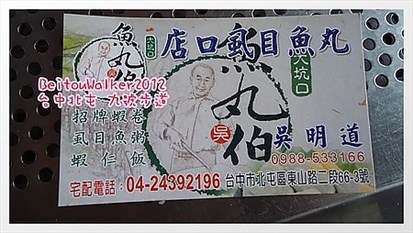 大坑口
魚丸伯
店口虱目魚丸
大坑口
魚丸伯
吳
BeitouWalker2012
台中北屯 九波步道
招牌蝦卷
虱目魚粥
蝦仁飯
吳明道
0988-533166
宅配電話：04-24392196 台中市北屯區東山路二段66-3號